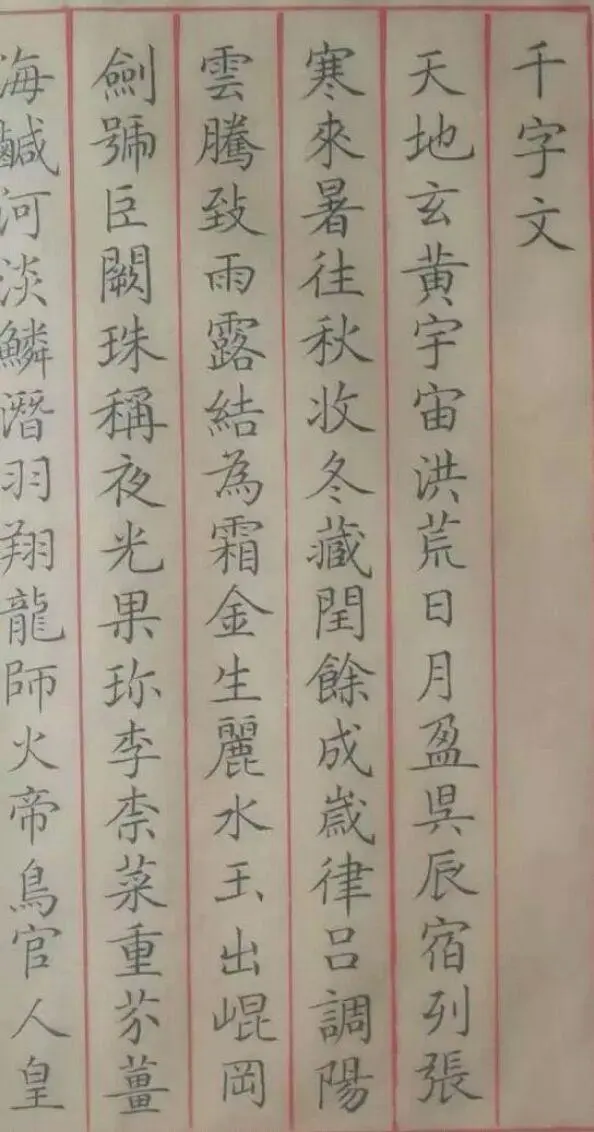 千字文
天地玄黄宇宙洪荒日月盈昃辰宿列張
寒來暑往秋收冬藏閏餘成歲律呂調陽
雲騰致雨露結為霜金生麗水玉出崐岡
劍號臣闕珠稱夜光果珎李柰菜重芥薑
海鹹河淡鱗潛羽翔龍師火帝鳥官人皇